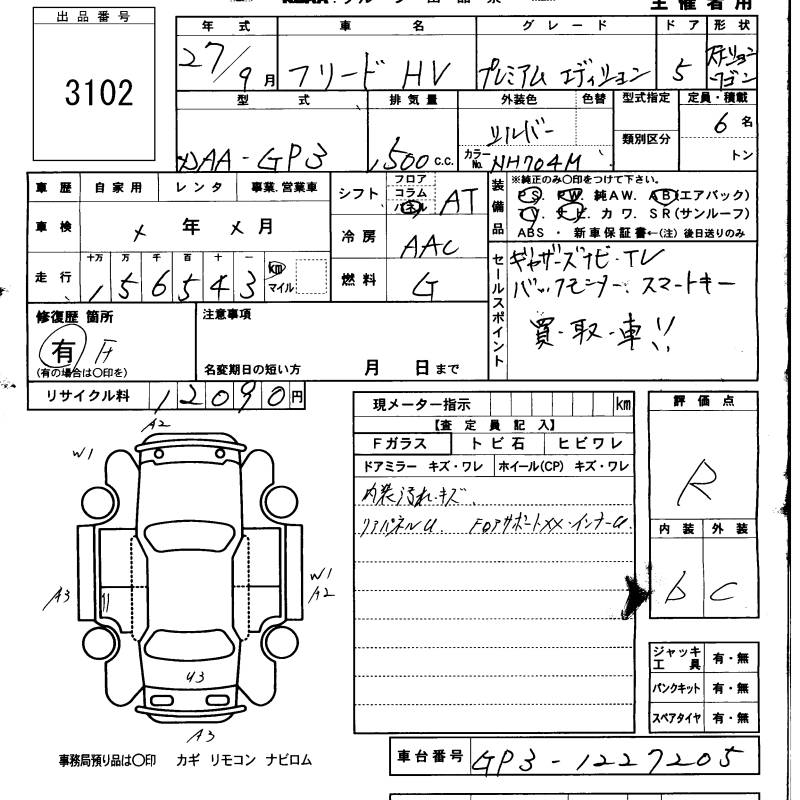 出品番号
3102
年式 車名 グレード ドア 形状
27/9月 フリード HV プレミアム エディション 5 ステーションワゴン
型式 排気量 外装色 色替 型式指定 定員・積載
類別区分
DAA-GP3 1,500c.c. シルバー 6名
カラーNo. NH704M トン
車歴 自家用 レンタ 事業.営業車
車検 × 年 × 月
走行 十万 万 千 百 十 一
156543 km マイル
シフト フロア コラム パネル AT
冷房 AAC
燃料 G
装備品 ※純正のみ〇印をつけて下さい。
PS. PW. 純AW. AB(エアバック)
TV. ナビ. カワ. SR(サンルーフ)
ABS・新車保証書←(注)後日送りのみ
セールスポイント
ギャザーズナビ・TV
バックモニター、スマートキー
買・取・車!!
修復歴 箇所
有
(有の場合は〇印を)
注意事項
名変期日の短い方 月 日まで
リサイクル料 12090円
現メーター指示 km
【査定員記入】
Fガラス トビ石 ヒビワレ
ドアミラー キズ・ワレ ホイール(CP) キズ・ワレ
内装汚れ・キズ、
リアパネルU. FDアサポートXX・インナーU.
評価点
R
内装 外装
b C
A2
W1
A3
W1
A2
U3
A3
ジャッキ工具 有・無
パンクキット 有・無
スペアタイヤ 有・無
事務局預り品は〇印 カギ リモコン ナビロム
車台番号 GP3-1227205